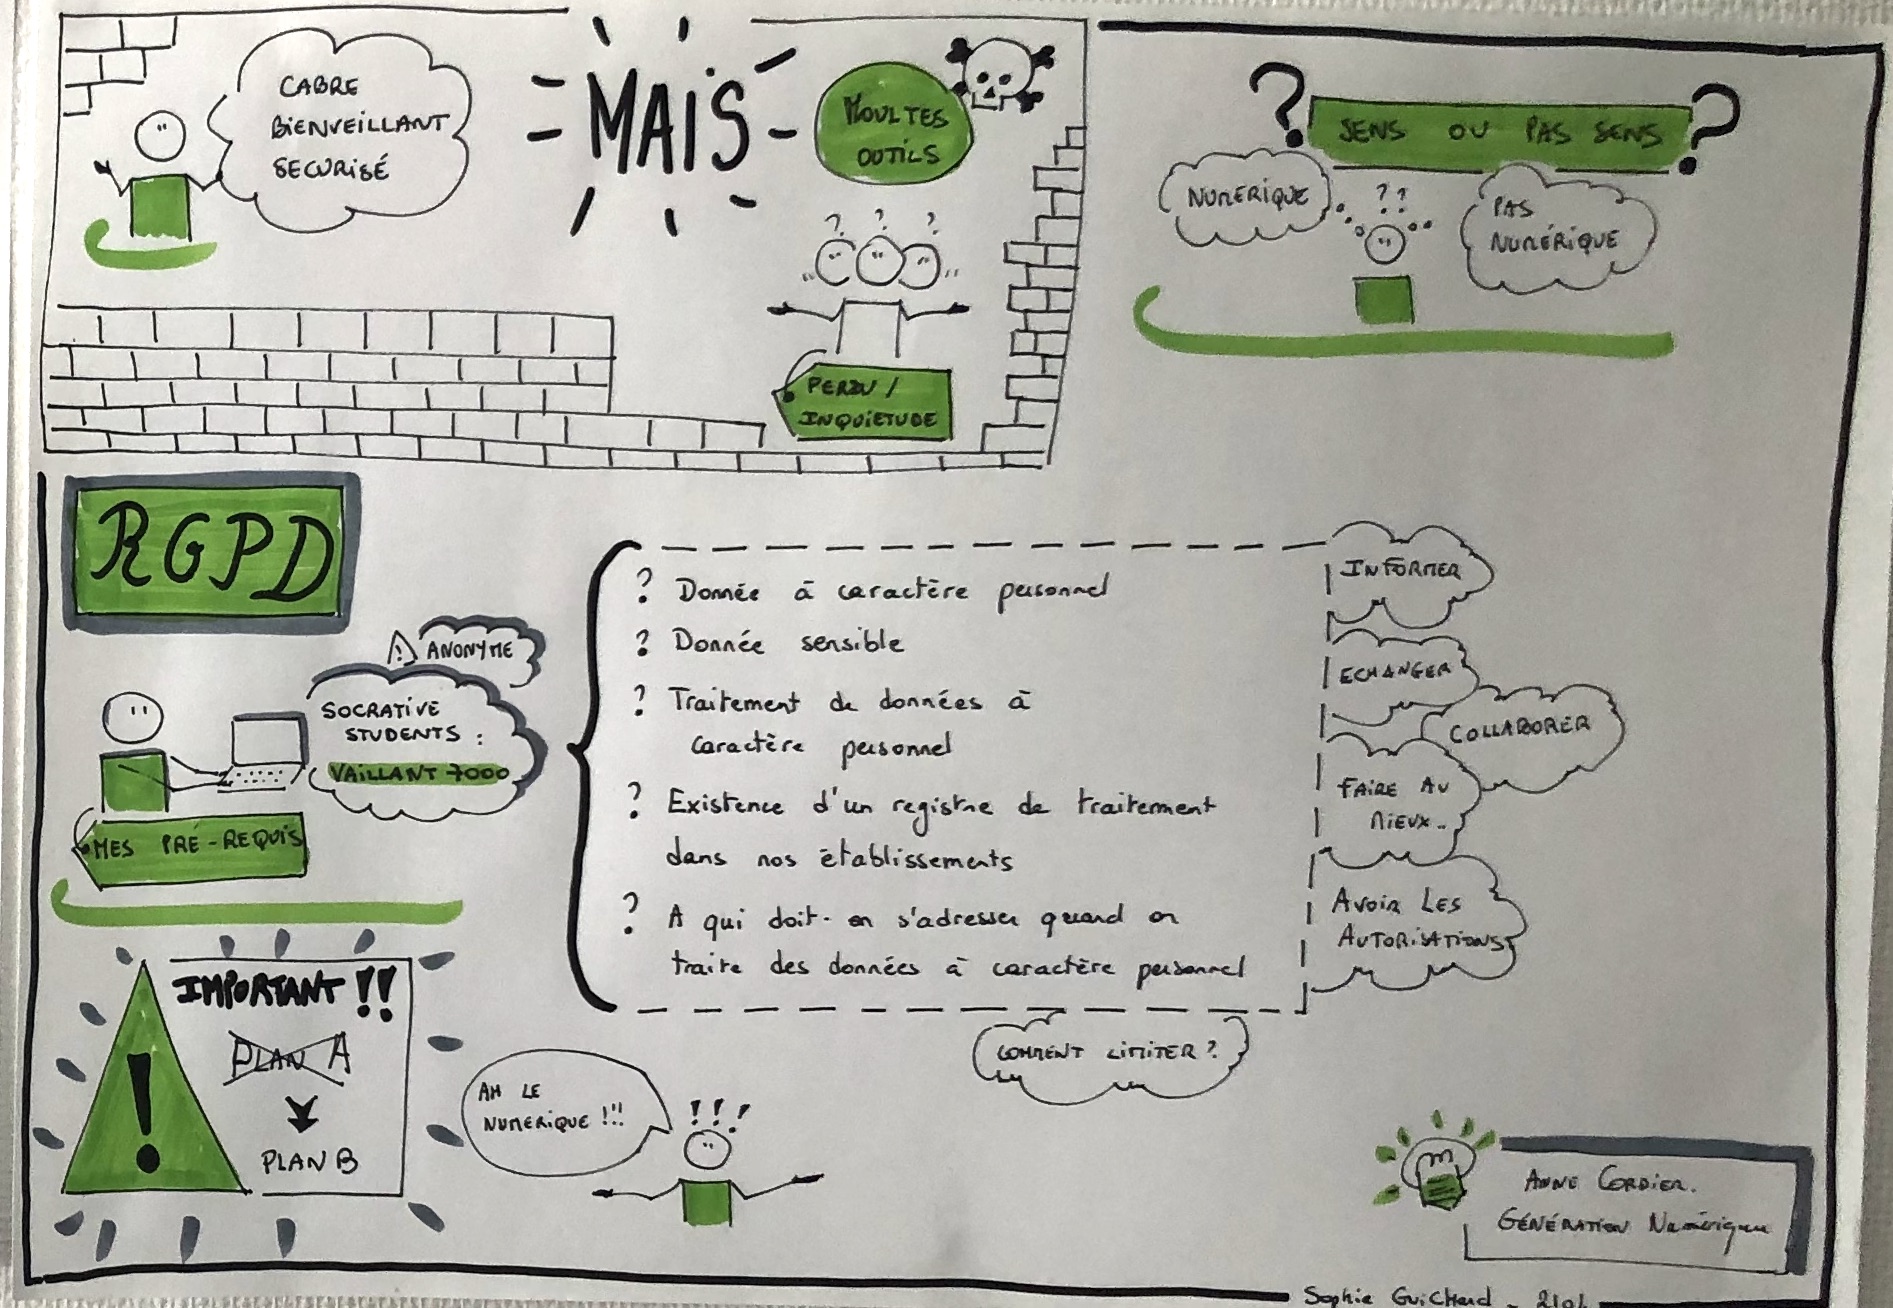 CABRE
BIENVEILLANT
SECURISÉ
MAIS
MOULTES
OUTILS
? ? ?
PERDU /
INQUIETUDE
? SENS OU PAS SENS ?
NUMERIQUE
??
PAS
NUMÉRIQUE
RGPD
! ANONYME
SOCRATIVE
STUDENTS :
VAILLANT 7000
MES PRÉ-REQUIS
? Donnée à caractère personnel
? Donnée sensible
? Traitement de données à
caractère personnel
? Existence d'un registre de traitement
dans nos établissements
? A qui doit-on s'adresser quand on
traite des données à caractère personnel
INFORMER
ECHANGER
COLLABORER
FAIRE AU
MIEUX..
AVOIR LES
AUTORISATIONS
COMMENT LIMITER ?
!
IMPORTANT !!
PLAN A
PLAN B
AH LE
NUMERIQUE !!!
!!!
ANNE CORDIER.
GÉNÉRATION Numérique
Sophie GuicHard -